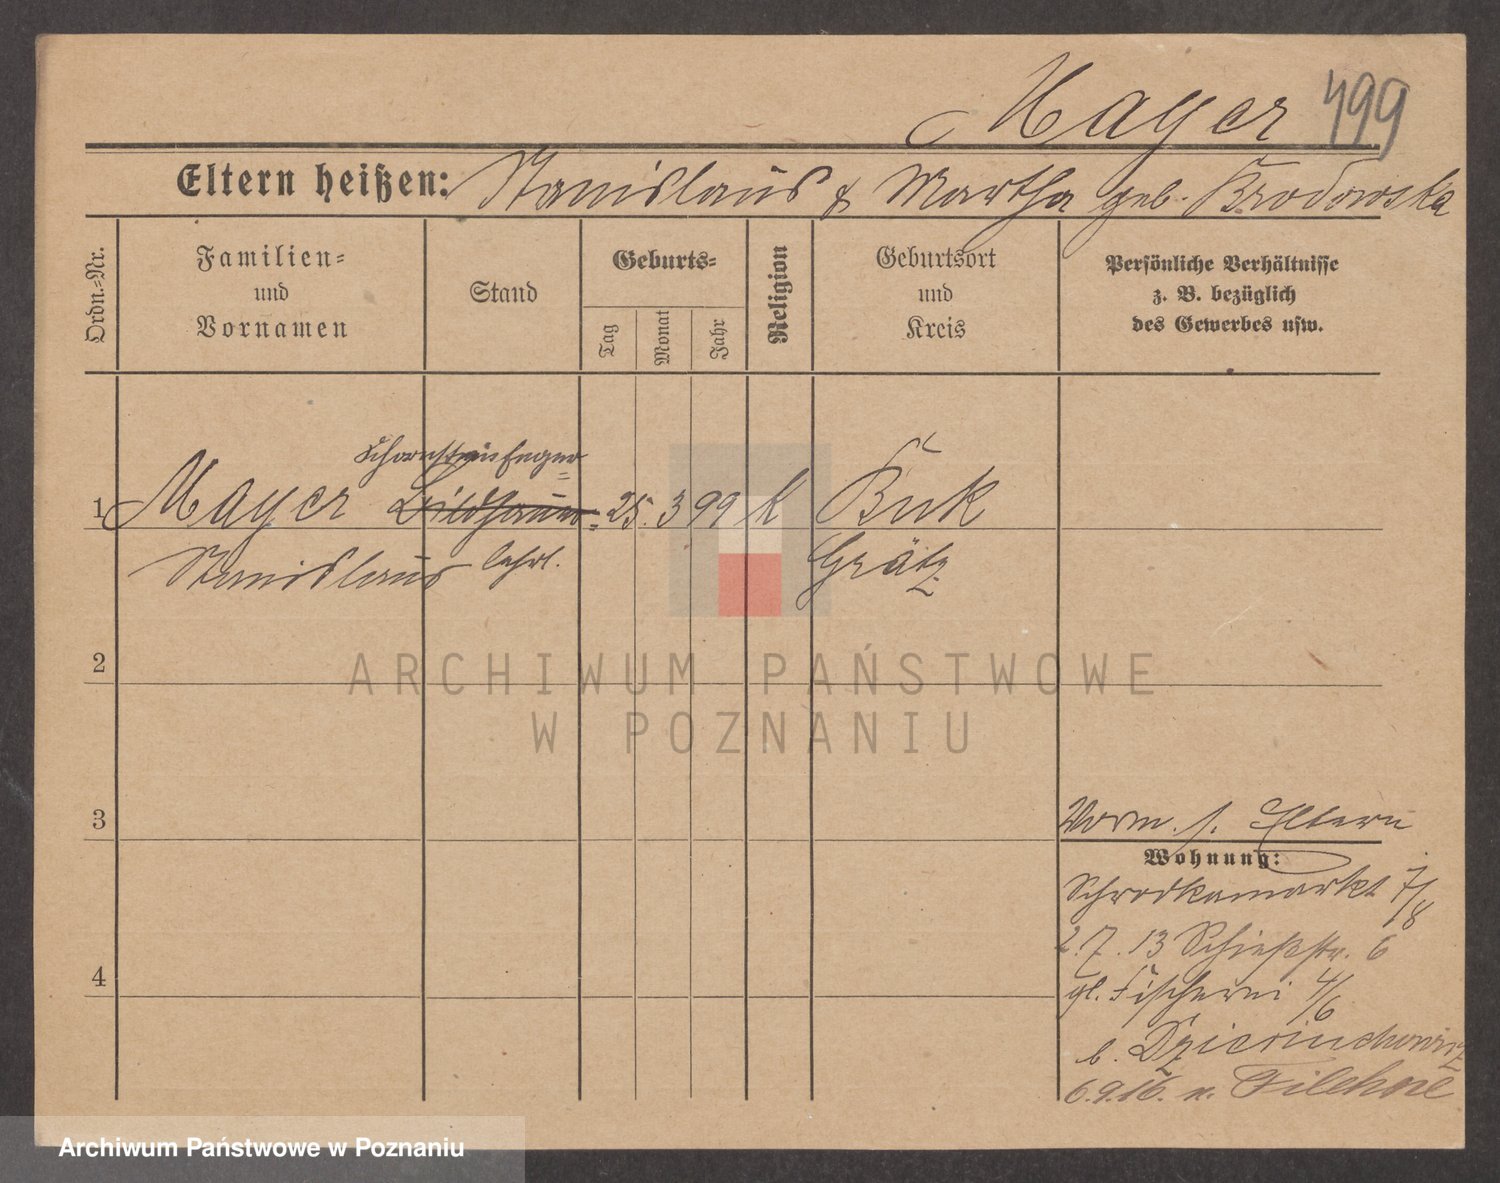 Mayer 499
Eltern heißen: Stanislaus & Martha geb. Brodowska
Ordn.-Nr.
Familien-
und
Vornamen
Stand
Geburts-
Tag
Monat
Jahr
Religion
Geburtsort
und
Kreis
Persönliche Verhältnisse
z. B. bezüglich
des Gewerbes usw.
Schornsteinfeger
1 Mayer Bildhauer- 25. 3 99 K Buk
Stanislaus lehrl. Grätz
2
3
4
Vorm. s. Eltern
Wohnung:
Schrodkamarkt 7/8
2.7.13 Schießstr. 6
gl. Fischerei 4/6
b.
6.9.16. n. Filehne
ARCHIWUM PAŃSTWOWE
W POZNANIU
Archiwum Państwowe w Poznaniu